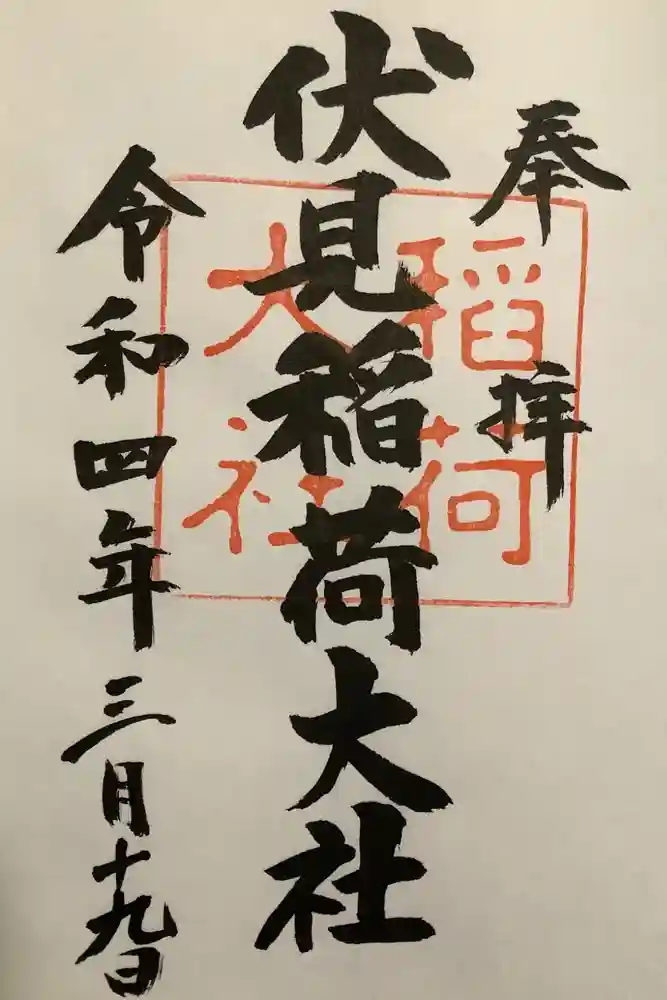 奉拝
伏見稲荷大社
稲荷
大社
令和四年三月十九日